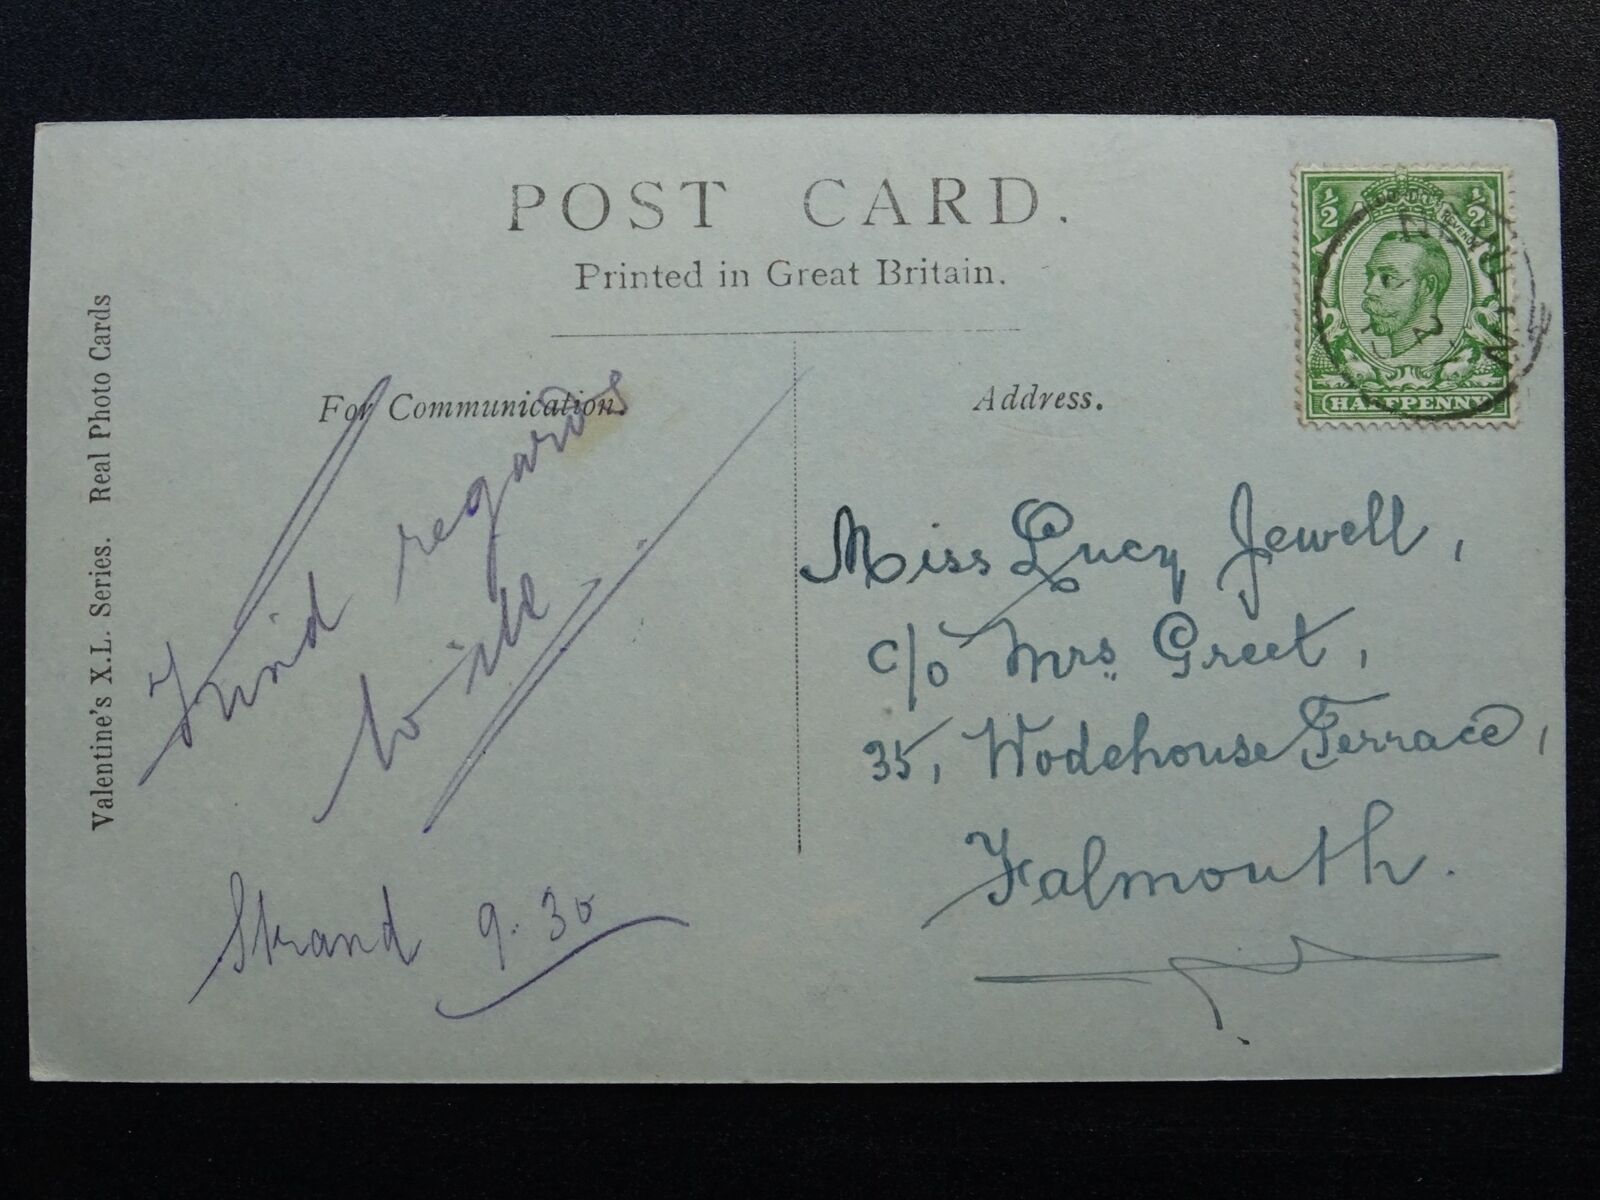 POST CARD.
Printed in Great Britain.
For Communication.
Address.
Valentine's X.L. Series. Real Photo Cards
regards
to all
Strand 9.30
Miss Lucy Jewell,
c/o Mrs Greet,
35, Wodehouse Terrace,
Falmouth.
1/2 1/2
HALFPENNY